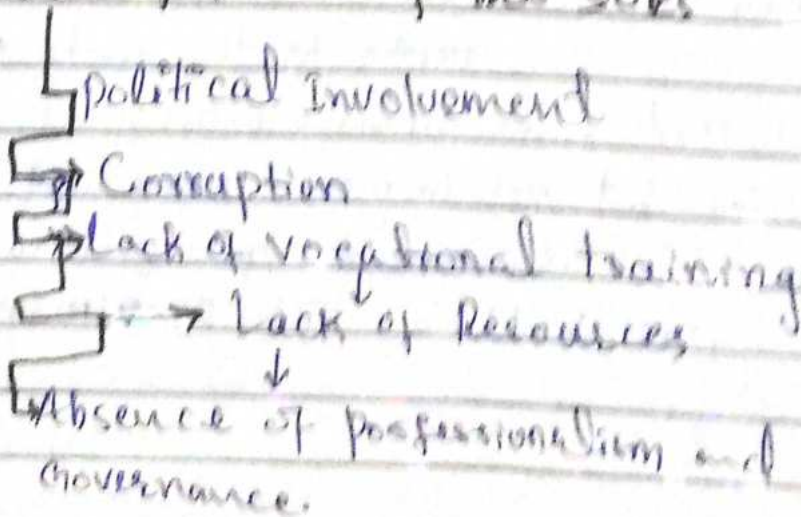 political Involvement
Corruption
Lack of vocational training
Lack of Resources
Absence of professionalism and
Governance.